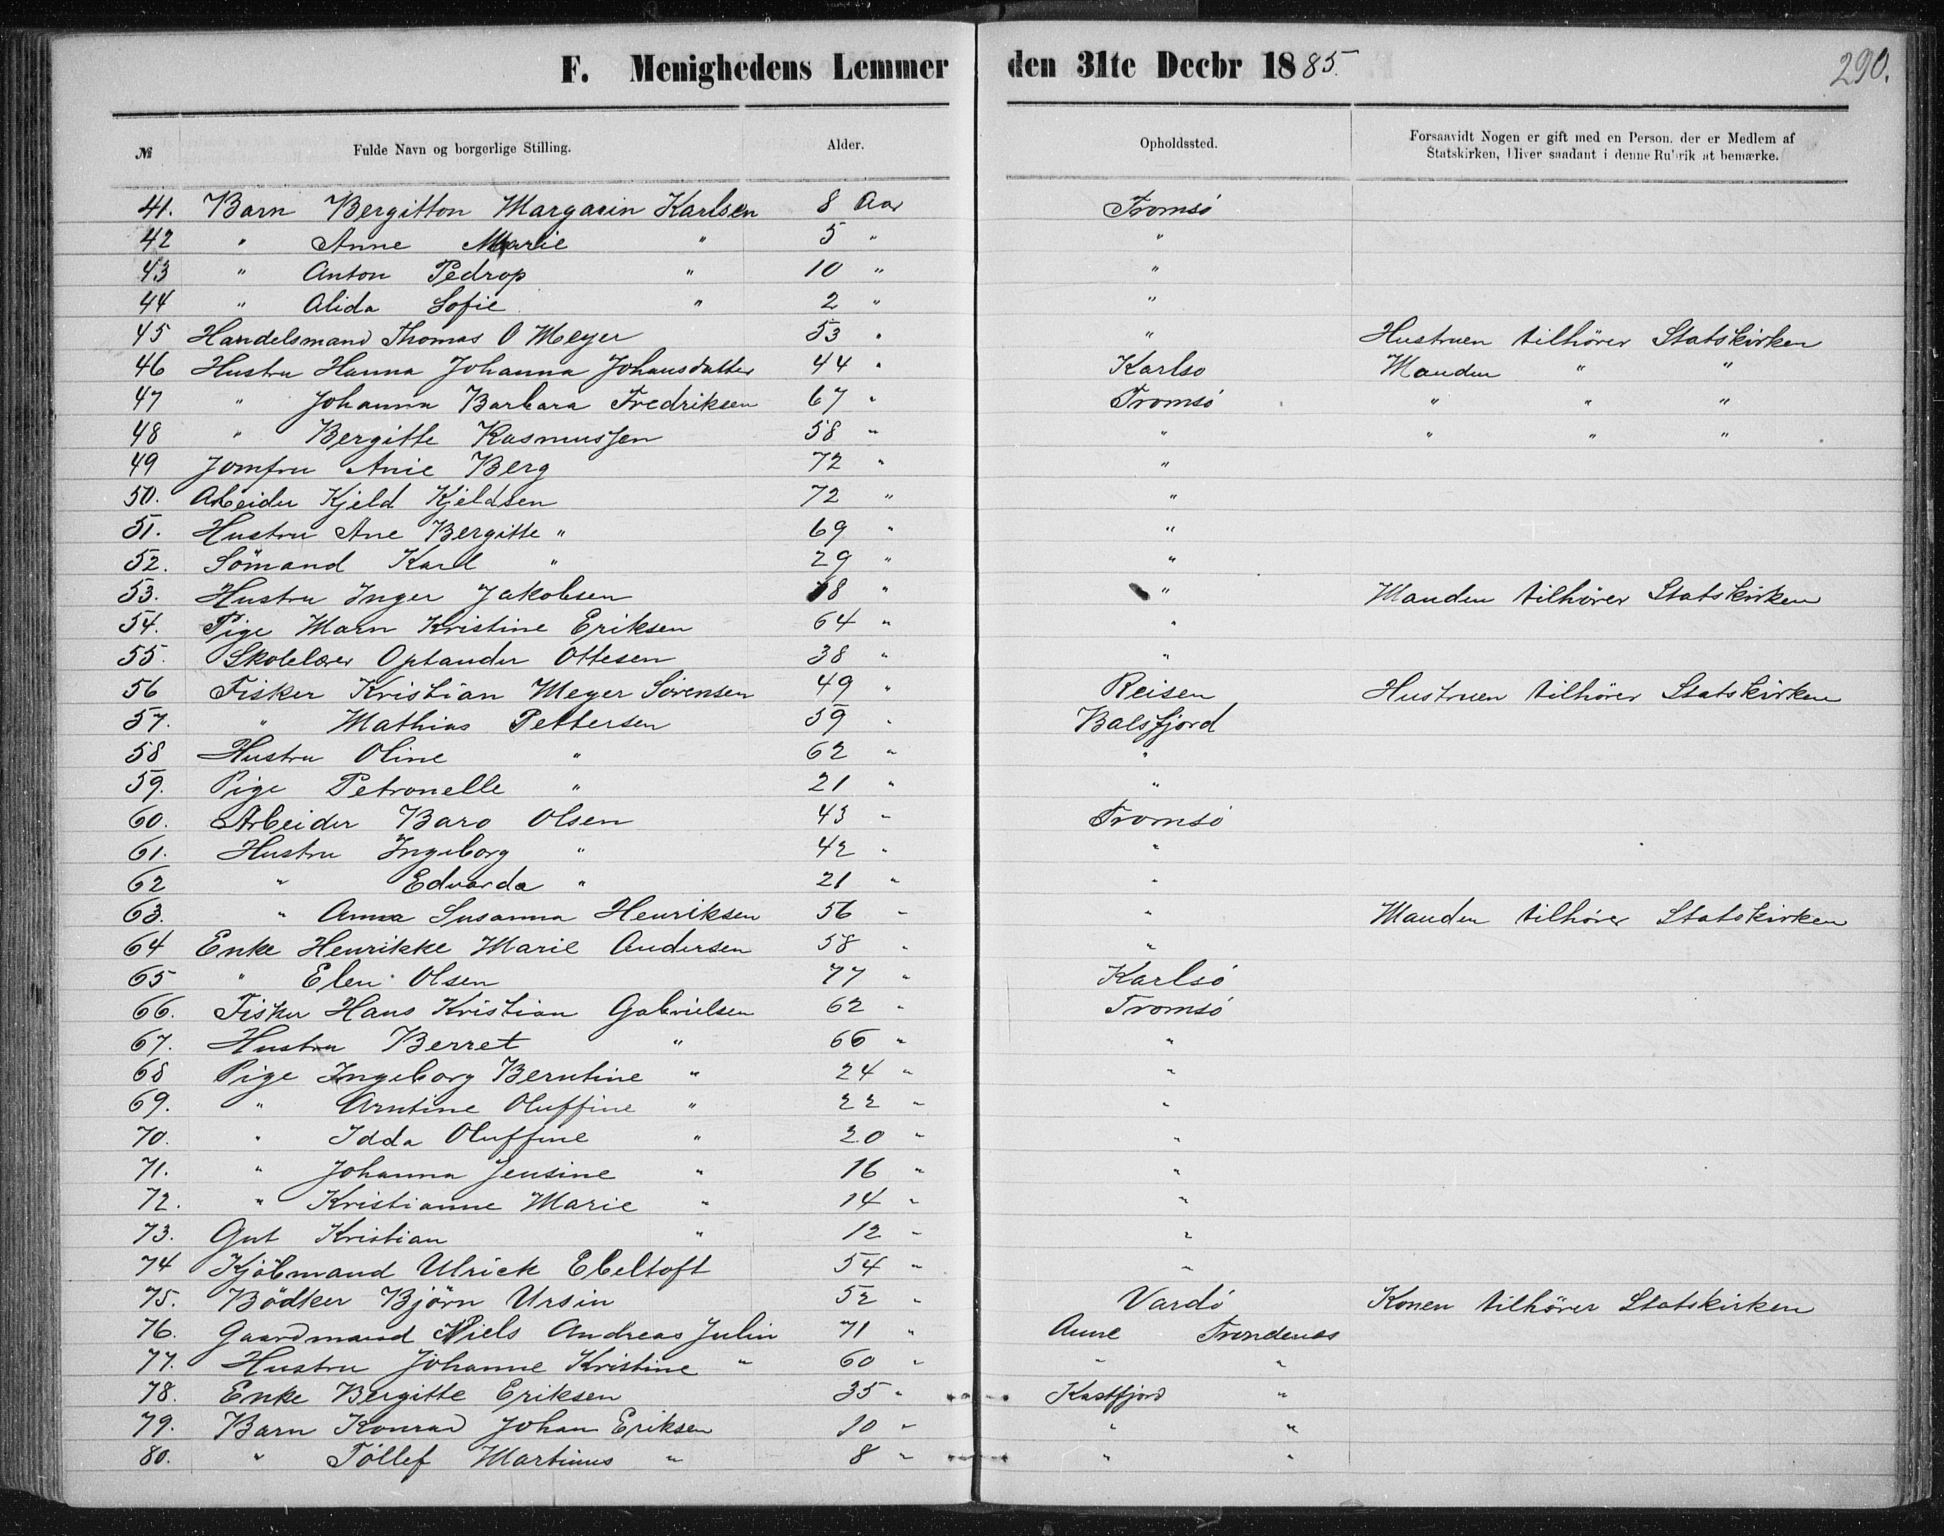 F. Menighedens Lemmer den 31te Decbr 1885. 290.
№ Fulde Navn og borgerlige Stilling. Alder. Opholdssted. Forsaavidt Nogen er gift med en Person, der er Medlem af
Statskirken, bliver saadant i denne Rubrik at bemærke.
41. Barn Bergitton Margarin Karlsen 8 Aar Tromsö
42 " Anne Marie " 5 " "
43 " Anton Pedrop " 10 " "
44 " Alida Sofie " 2 " "
45 Handelsmand Thomas O Meyer 53 " " Hustruen tilhörer Statskirken
46 Hustru Hanna Johanna Johansdatter 44 " Karlsö Manden " "
47 " Johanna Barbara Fredriksen 67 " Tromsö " " "
48 " Bergitte Rasmussen 58 " " " " "
49 Jomfru Anie Berg 72 " "
50. Arbeider Kjeld Kjeldsen 72 " "
51. Hustru Ane Bergitte " 69 " "
52. Sömand Karl " 29 " "
53. Hustru Inger Jakobsen 78 " " Manden tilhörer Statskirken
54. Pige Marn Kristine Eriksen 64 " "
55. Skolelærer Optander Ottesen 38 " "
56 Fisker Kristian Meyer Sörensen 49 " Reisen Hustruen tilhörer Statskirken
57. " Mathias Pettersen 59 " Balsfjord
58 Hustru Oline " 62 " "
59. Pige Petronelle " 21 " "
60. Arbeider Baro Olsen 43 " Tromsö
61. Hustru Ingeborg " 42 " "
62 " Edvarda " 21 " "
63. " Anna Susanna Henriksen 56 " " Manden tilhörer Statskirken
64 Enke Henrikke Marie Andersen 58 " "
65 " Elen Olsen 77 " Karlsö
66. Fisker Hans Kristian Gabrielsen 62 " Tromsö
67. Hustru Berret " 66 " "
68 Pige Ingeborg Berntine " 24 " "
69. " Arntine Oluffine " 22 " "
70. " Idda Oluffine " 20 " "
71. " Johanna Jensine " 16 " "
72. " Kristianne Marie " 14 " "
73. Gut Kristian " 12 " "
74 Kjöbmand Ulrick Ebeltoft 54 " "
75. Bödker Björn Ursin 52 " Vardö Konen tilhörer Statskirken
76. Gaardmand Niels Andreas Julin 71 " Aune Trondenæs
77. Hustru Johanne Kristine " 60 " " "
78. Enke Bergitte Eriksen 35 " Kastfjord "
79. Barn Konrad Johan Eriksen 10 " " "
80. " Töllef Martinus " 8 " " "